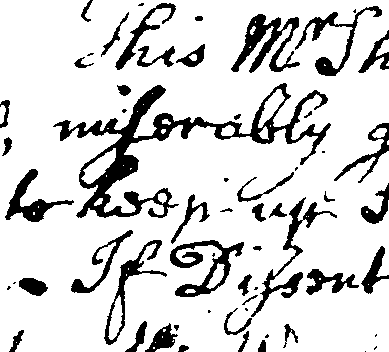 This Mr Sh
miserably g
to keep up
If Dissent